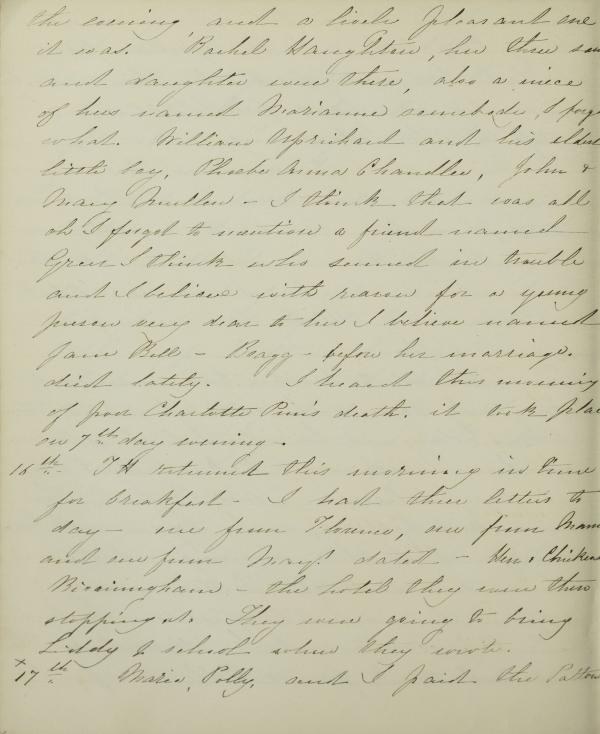 the evening, and a lively pleasant one
it was. Rachel Haughton, her three
and daughter were there, also a niece
of hers named Marianne somebody, I
what. William Uprichard and his eldest
little boy, Phoebe Anna Chandlee, John &
Mary - I think that was all
oh I forgot to mention a friend named
Greer I think who seemed in trouble
and I believe with reason for a young
person very dear to her I believe named
Jane Bell - Bragg - before her marriage.
died lately. I heard this morning
of poor Charlotte Pim's death. it took
on 7th day evening -
16th. T H returned this morning in time
for breakfast - I had three letters to
day - one from Florence, one from
and one from Mary dated - Hen &
Birmingham - the hotel they were then
stopping at. They were going to bring
Liddy to school when they wrote.
x
17th. Maria, Polly, and I paid the